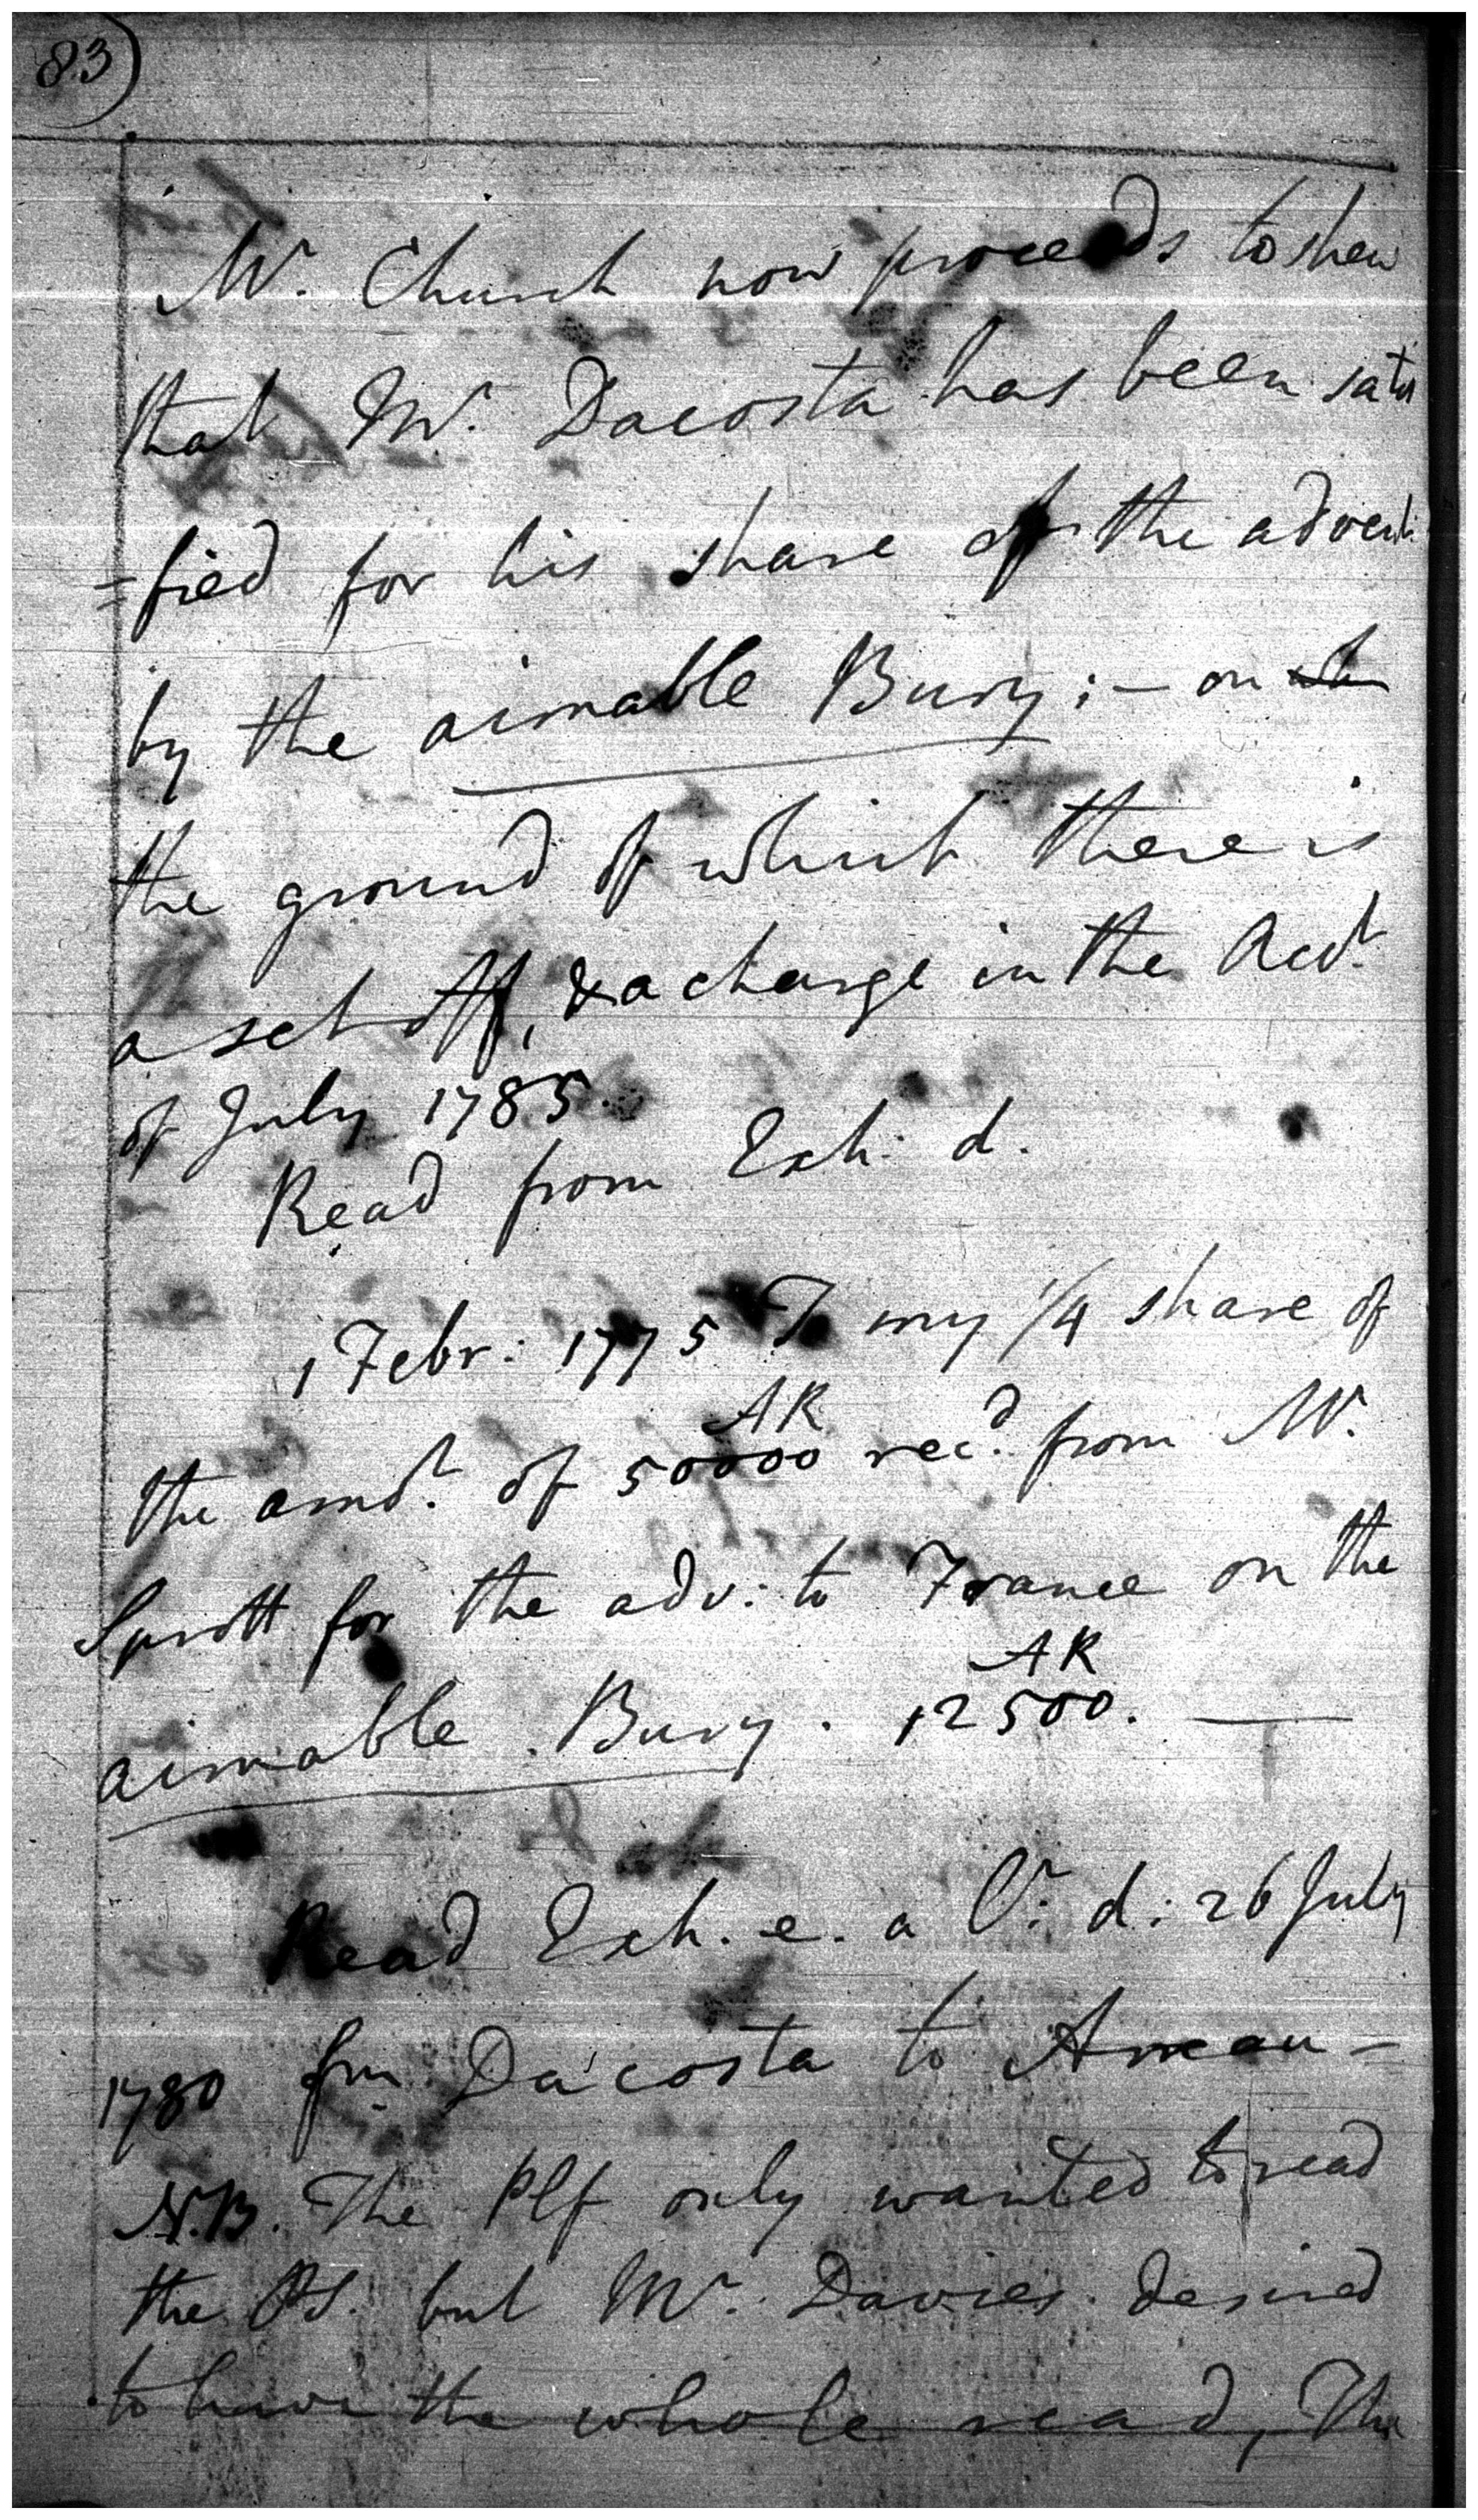 83)
Mr. Church now proceeds to shew
that Mr. Dacosta has been satis
=fied for his share of the advent:
by the aimable Bury; — on
the ground of which there is
a set off, & a charge in the Acct.
of July 1785.
Read from Exh: d.
1 Febr: 1775 To my 1/4 share of
AR
the amot. of 50000 recd. from Mr.
Sprott for the adv: to France on the
AR
aimable Bury. 12500. —
Read Exh. e. a lr: d: 26 July
1780 fm Dacosta to
N.B. The Plf only wanted to read
the PS. but Mr. Davies desired
to have the whole read, The